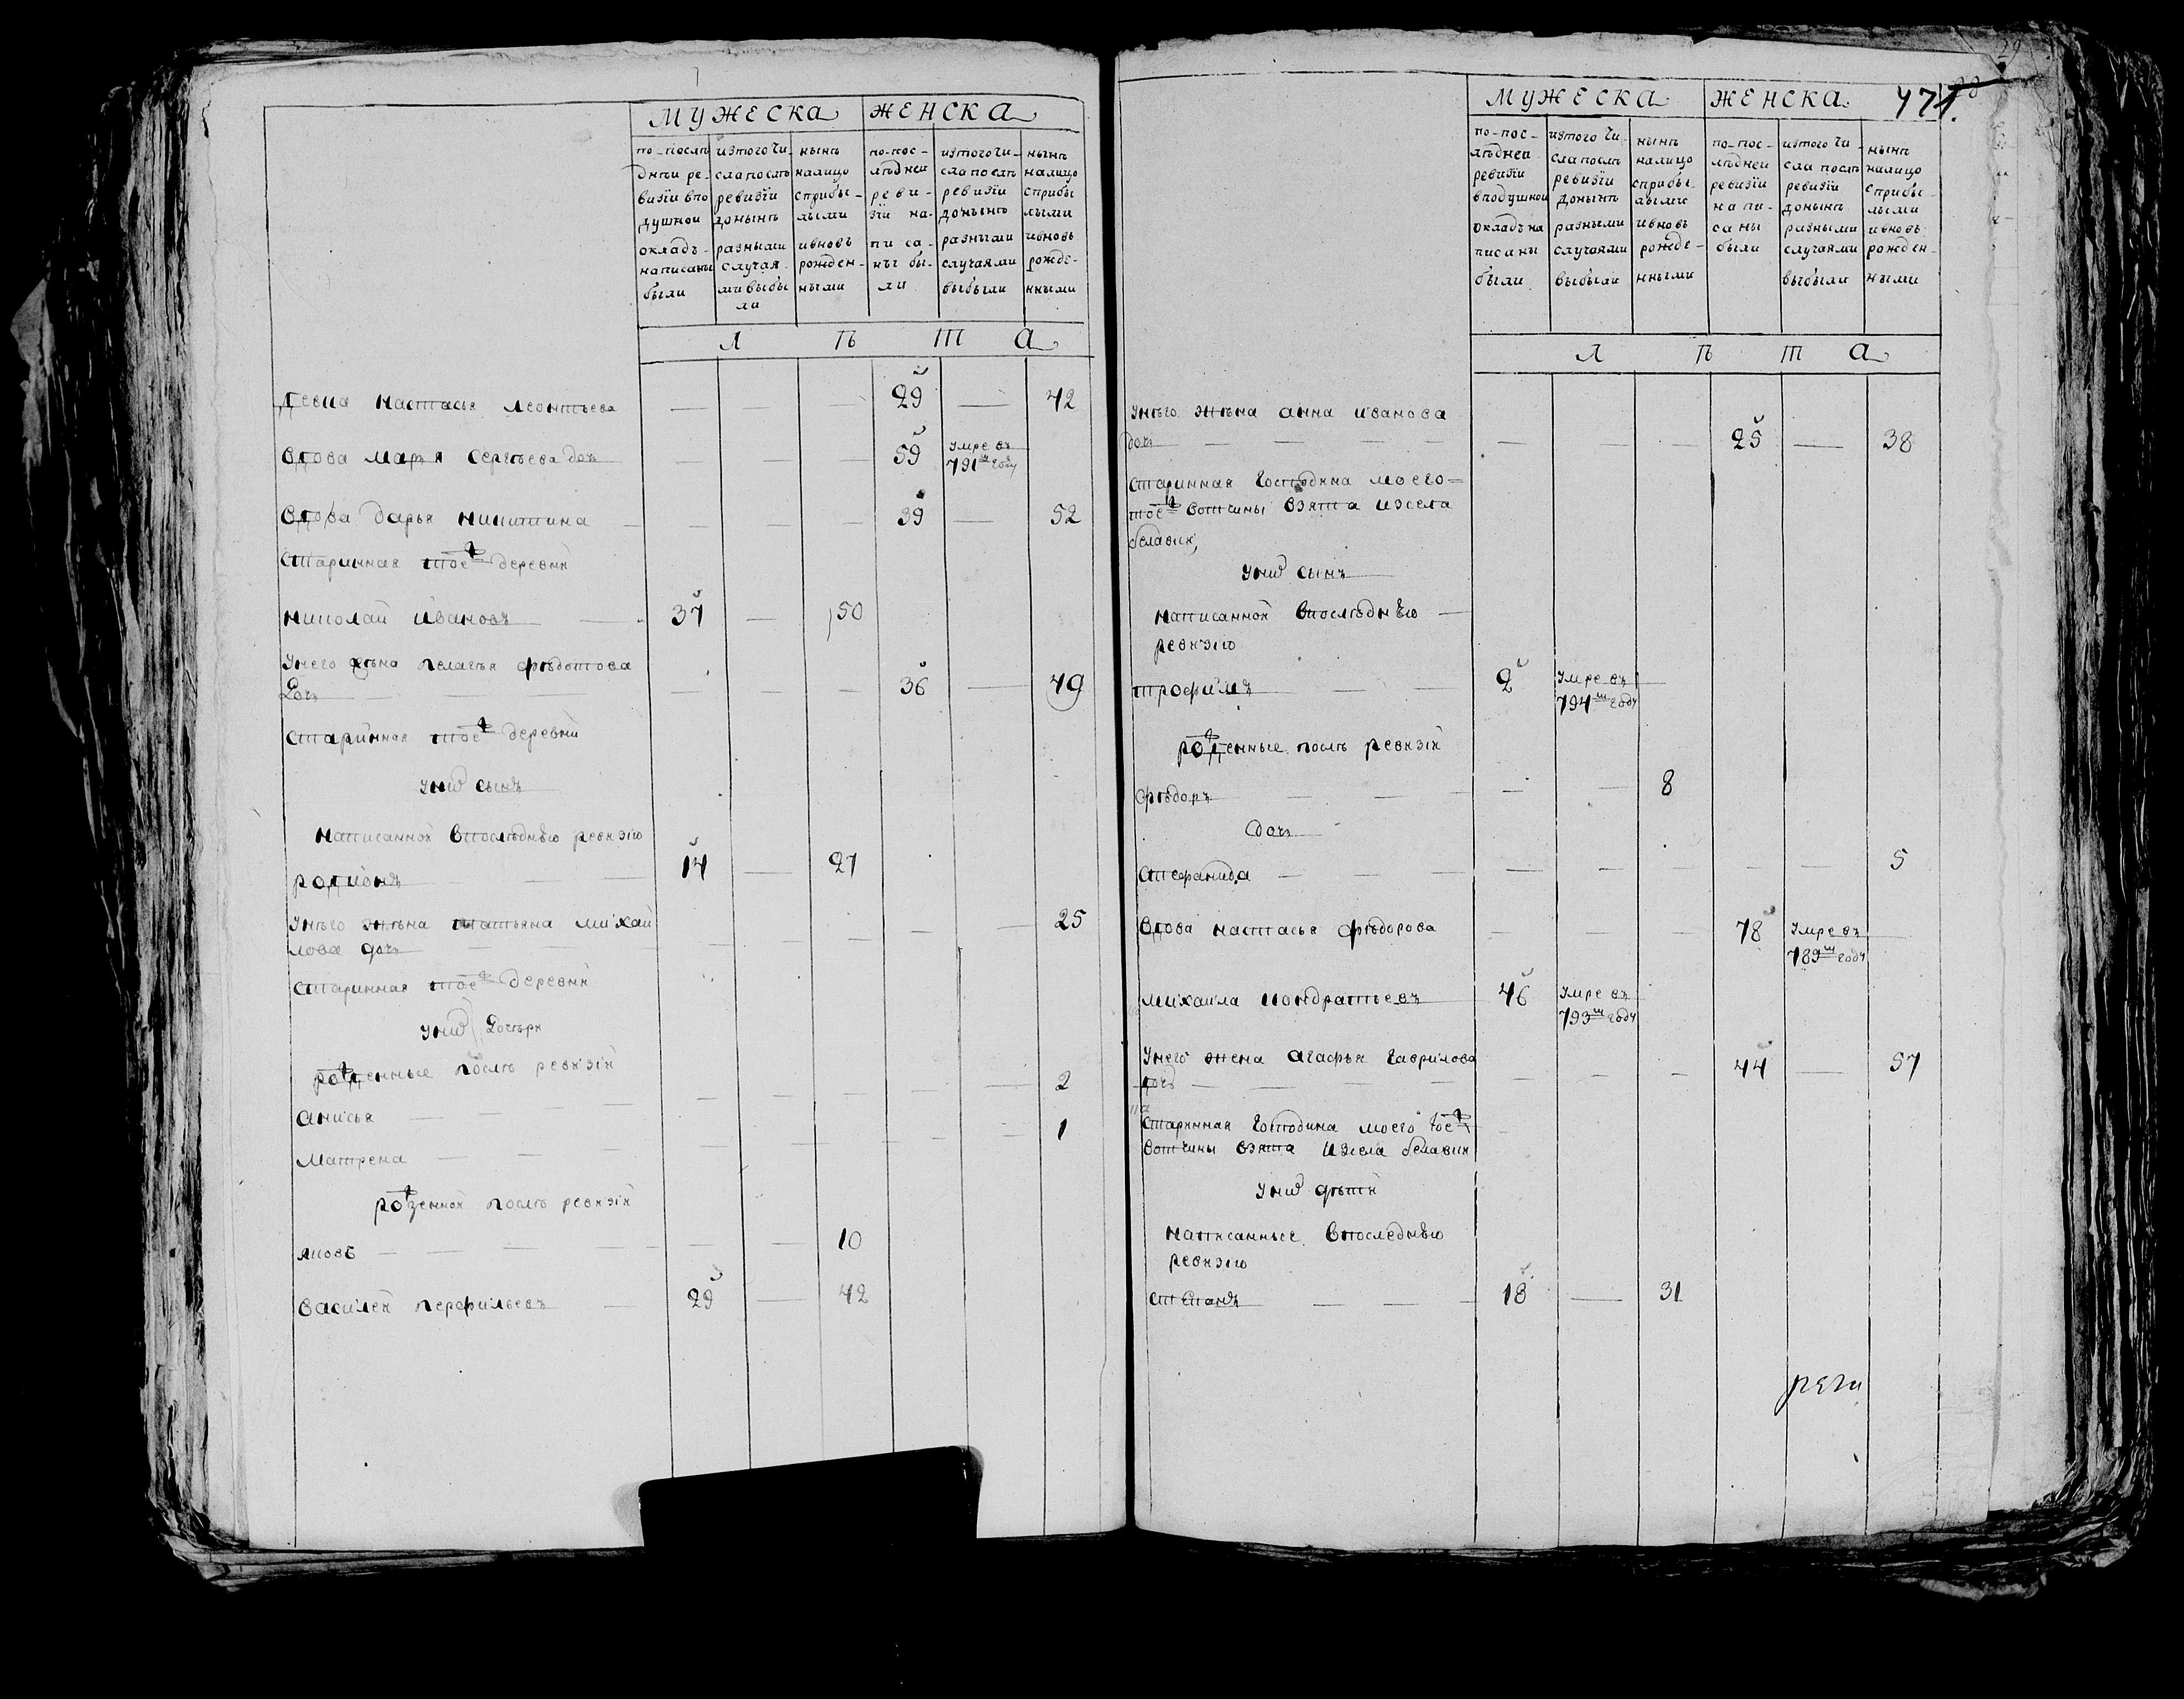 МУЖЕСКА ЖЕНСКА
по-послѣ
днѣи ре-
визіи впо
душнои
окладъ-
написаны
были
изтого чи-
сла послѣ
ревизіи
донынѣ
разными
случая-
ми выбы
ли
нынѣ
налицо
сприбы-
лыми
ивновь
рожден-
ными
по-пос-
лѣднеи
реви-
зіи на-
писа-
ны бы-
ли
изтого чи-
сла послѣ
ревизіи
донынѣ
разными
случаями
выбыли
нынѣ
налицо
сприбы
лыми
ивновь
рожде-
нными
Л Ѣ Т А
девка настасья леонтьева 29 42
вдова марья сергѣева доч 59 умре въ
791м году
вдова дарья никитина 39 52
старинная тое ж деревни
николай ивановъ 37 50
унего жѣна пелагѣя фѣдотова
доч 36 49
старинная тое ж деревни
уних сынъ
написанной впослѣднѣю ревизію
родионъ 14 27
унѣго жѣна татьяна михаи
лова доч 25
старинная тое ж деревни
уних дочѣри
рожденные послѣ ревизіи
анисья 2
матрена 1
рожденной послѣ ревизіи
яковъ 10
василей перфильевъ 29 42
471.
МУЖЕСКА ЖЕНСКА
по-пос-
лѣднеи
ревизіи
вподушнои
окладъ на
писаны
были
изтого чи-
сла послѣ
ревизіи
донынѣ
разными
случаями
выбыли
нынѣ
налицо
сприбы-
лыми
ивновь
рожде-
нными
по-пос-
лѣднеи
ревизіи
напи-
саны
были
изтого чи-
сла послѣ
ревизіи
донынѣ
разными
случаями
выбыли
нынѣ
налицо
сприбы-
лыми
ивновь
рожден-
ными
Л Ѣ Т А
унѣго жѣна анна иванова
доч 25 38
старинная господина моего
тое ж вотчины взята изсела
белавки,
уних сынъ
написанной впослѣднѣю
ревизію
трофимъ 2 умре въ
794м году
рожденные послѣ ревизіи
фѣдоръ 8
доч
стефанида 5
вдова настасья фѣдорова 78 умре въ
789м году
михаила кондратьевъ 46 умре въ
793м году
унего жена агафья гаврилова
доч 44 57
старинная господина моего тое ж
вотчины взята изсела белавки
уних дѣти
написанные впоследнѣю
ревизію
степанъ 18 31